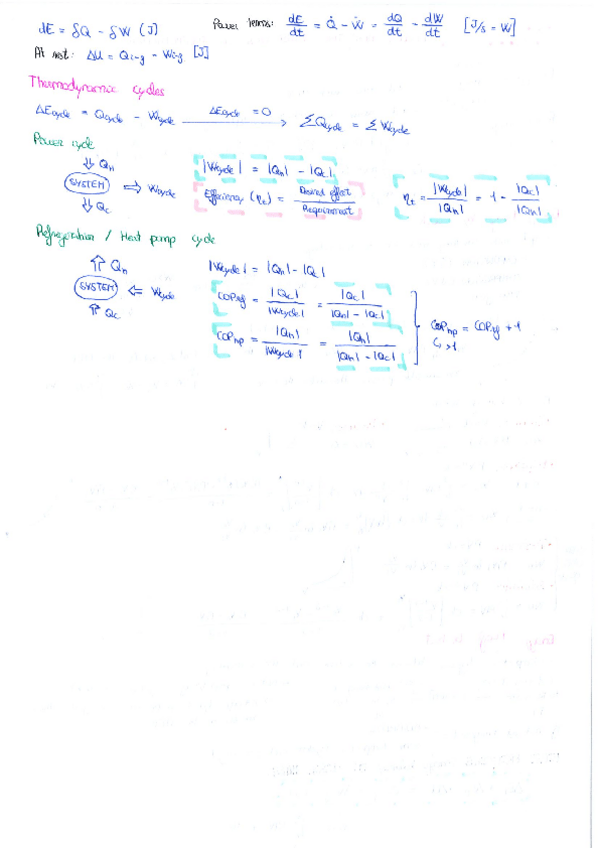 dE = δQ - δW (J) Power terms: dE/dt = Q̇ - Ẇ = dQ/dt - dW/dt [J/s = W]
At rest: ΔU = Qi-j - Wi-j [J]
Thermodynamic cycles
ΔEcycle = Qcycle - Wcycle ΔEcycle = 0 → ΣQcycle = ΣWcycle
Power cycle
⇓ Qh
SYSTEM ⇒ Wcycle
⇓ Qc
|Wcycle| = |Qh| - |Qc|
Efficiency (ηt) = Desired effect / Requirement ηt = |Wcycle| / |Qh| = 1 - |Qc| / |Qh|
Refrigeration / Heat pump cycle
⇑ Qh
SYSTEM ⇐ Wcycle
⇑ Qc
|Wcycle| = |Qh| - |Qc|
COPref = |Qc| / |Wcycle| = |Qc| / (|Qh| - |Qc|)
COPhp = |Qh| / |Wcycle| = |Qh| / (|Qh| - |Qc|)
COPhp = COPref + 1
↳ >1